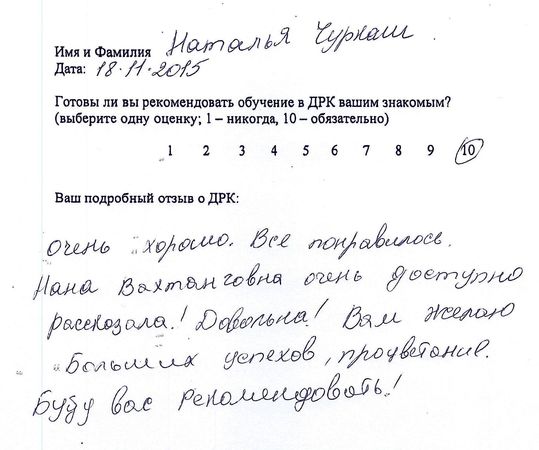 Имя и Фамилия Наталья Чуркаш.
Дата: 18.11.2015
Готовы ли вы рекомендовать обучение в ДРК вашим знакомым?
(выберите одну оценку; 1 – никогда, 10 – обязательно)
1 2 3 4 5 6 7 8 9 10
Ваш подробный отзыв о ДРК:
очень хорошо. Все понравилось.
Нана Вахтанговна очень доступно
рассказала! Довольна! Вам желаю
Больших успехов, процветание.
Буду вас рекомендовать!